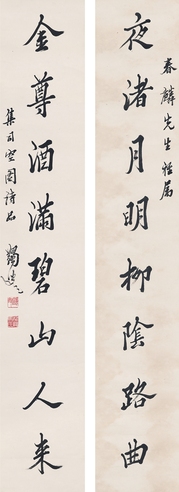 春麟先生惟属
夜渚月明柳陰路曲
金尊酒滿碧山人来
集司空圖詩品